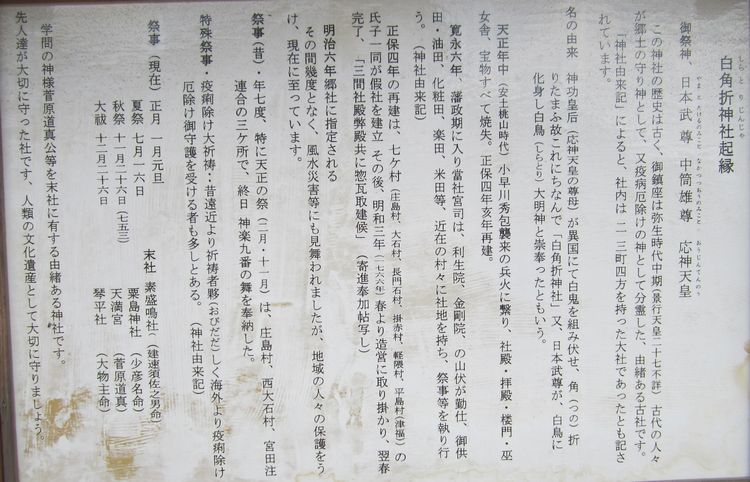 白角折神社起縁
しらとりじんじゃ
御祭神 日本武尊 中筒雄尊 応神天皇
やまとたけるのみこと なかつつおのみこと おうじんてんのう
この神社の歴史は古く、御鎮座は弥生時代中期(景行天皇二十七不詳)古代の人々
が郷土の守り神として、又疫病厄除けの神として分霊した、由緒ある古社です。
「神社由来記」によると、社内は二一三町四方を持った大社であったとも記さ
れています。
名の由来 神功皇后(応神天皇の尊母)が異国にて白鬼を組み伏せ、角(つの)折
りたまふ故これにちなんで「白角折神社」又、日本武尊が、白鳥に
化身し白鳥(しらとり)大明神と崇奉ったともいう。
天正年中(安土桃山時代)小早川秀包襲来の兵火に繋り、社殿・拝殿・楼門・巫
女舎、宝物すべて焼失。正保四年亥年再建。
寛永六年、藩政期に入り當社宮司は、利生院、金剛院、の山伏が勤仕、御供
田・油田、化粧田、楽田、米田等、近在の村々に社地を持ち、祭事等を執り行
う。(神社由来記)
正保四年の再建は、七ケ村(庄島村、大石村、長門石村、掛赤村、軽隈村、平島村(津福)の
氏子一同が假社を建立 その後、明和三年(一七六六年)春より造営に取り掛かり、翌春
完了、「三間社殿弊殿共に惣瓦取建候」(寄進奉加帖写し)
明治六年郷社に指定される
その間幾度となく、風水災害等にも見舞われましたが、地域の人々の保護をう
け、現在に至っています。
祭事(昔)・年七度、特に天正の祭(二月・十一月)は、庄島村、西大石村、宮田注
連合の三ケ所で、終日 神楽九番の舞を奉納した。
特殊祭事・疫痢除け大祈祷・昔遠近より祈祷者夥(おびただ)しく海外より疫痢除け
厄除け御守護を受ける者も多しとある。(神社由来記)
祭事(現在) 正月 一月元旦
夏祭 七月一六日
秋祭 十一月二十六日(七五三)
大祓 十二月二十六日
末社 素盛鳴社(建速須佐之男命)
粟島神社(少彦名命)
天満宮(菅原道真)
琴平社(大物主命)
学問の神様菅原道真公等を末社に有する由緒ある神社です。
先人達が大切に守った社です、人類の文化遺産として大切に守りましょう。